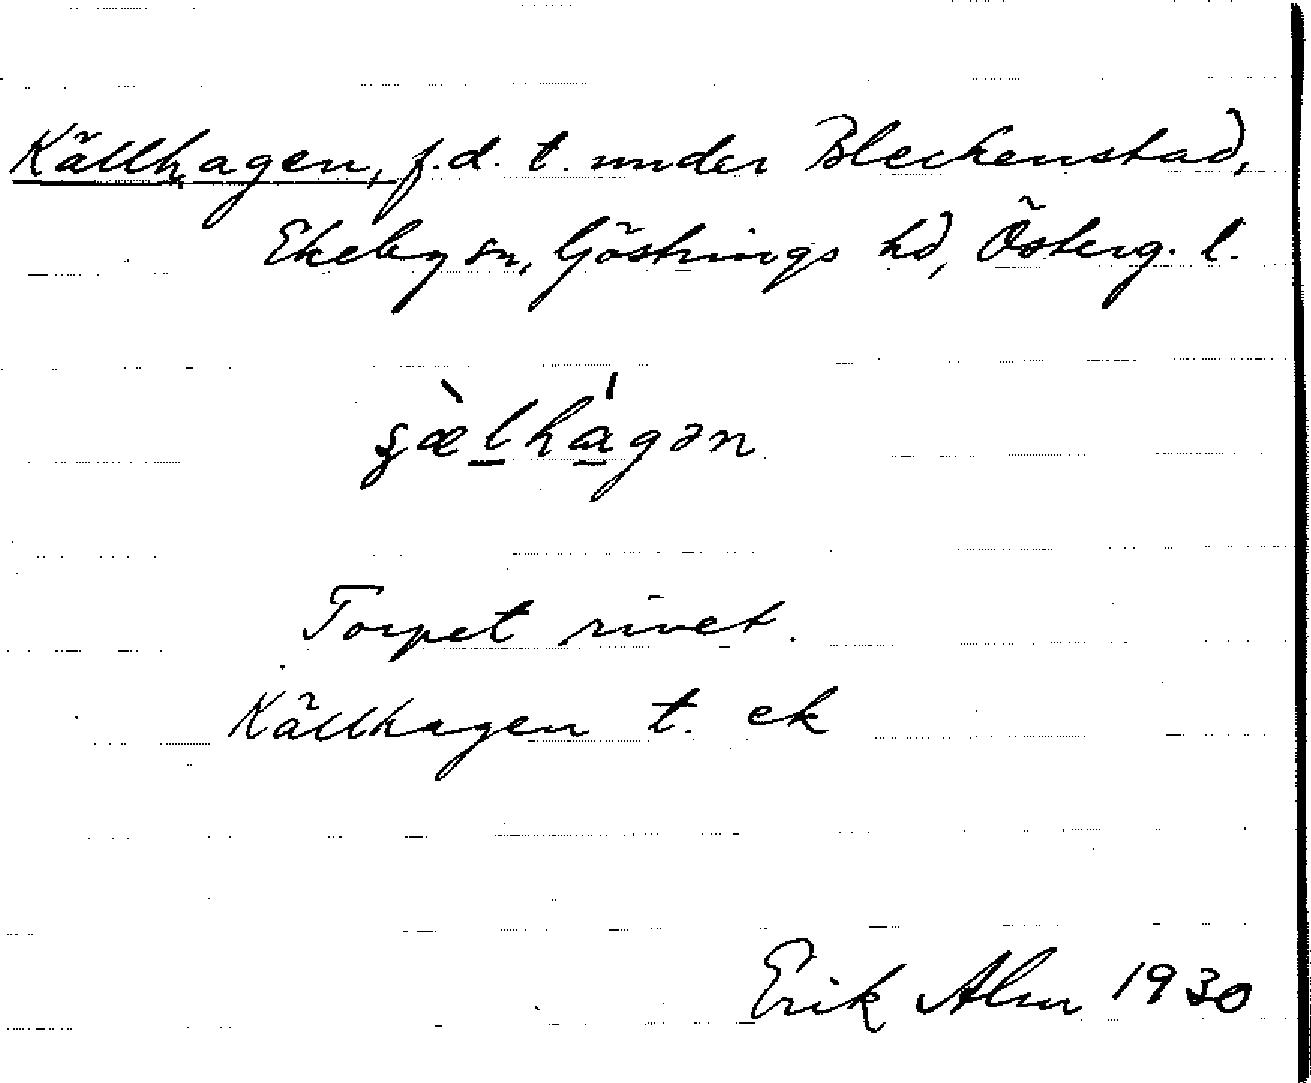 Källhagen, f.d. t. under Bleckenstad,
Ekeby sn, Göstrings hd, Österg. l.
ʂæ̀lhágən
Torpet rivet.
Källhagen t. ek
Erik Alm 1930